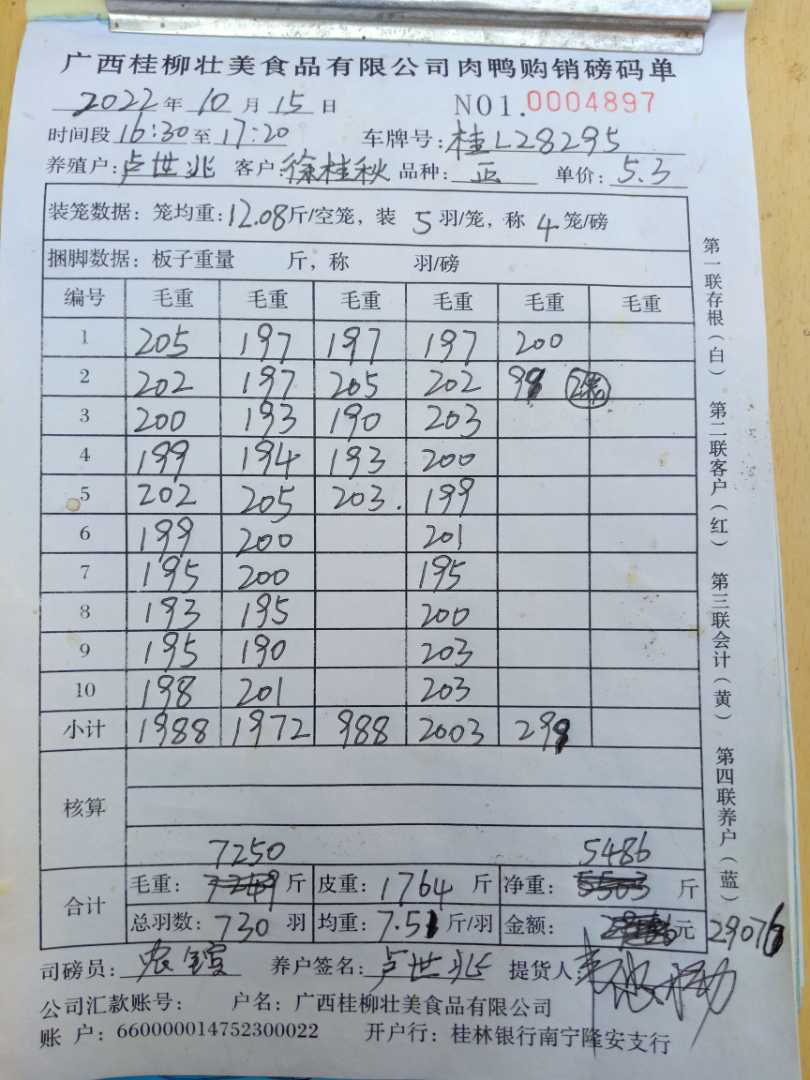 广西桂柳壮美食品有限公司肉鸭购销磅码单
2022年10月15日 NO1.0004897
时间段16:30至17:20 车牌号:桂L28295
养殖户:卢世兆 客户:徐桂秋 品种:正 单价:5.3
装笼数据:笼均重:12.08斤/空笼,装5羽/笼,称4笼/磅
捆脚数据:板子重量 斤,称 羽/磅
编号 毛重 毛重 毛重 毛重 毛重 毛重
1 205 197 197 197 200
2 202 197 205 202 98
3 200 193 190 203
4 199 194 193 200
5 202 205 203. 199
6 199 200 201
7 195 200 195
8 193 195 200
9 195 190 203
10 198 201 203
小计 1988 1972 988 2003 298
核算
7250 5486
合计 毛重: 斤 皮重:1764斤 净重: 斤
总羽数:730羽 均重:7.51斤/羽 金额: 元 29076
司磅员: 养户签名:卢世兆 提货人
公司汇款账号: 户名:广西桂柳壮美食品有限公司
账 户:660000014752300022 开户行:桂林银行南宁隆安支行
第一联存根(白) 第二联客户(红) 第三联会计(黄) 第四联养户(蓝)